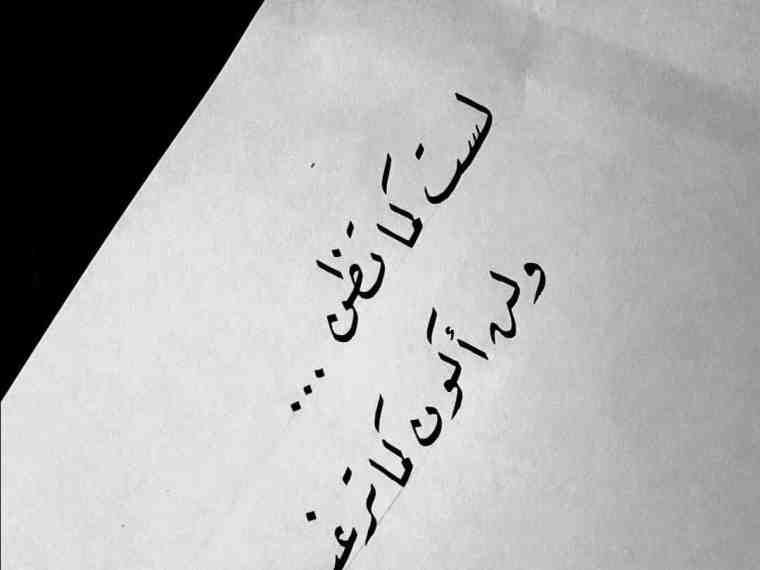 لست كما تظن ...
ولن أكون كما